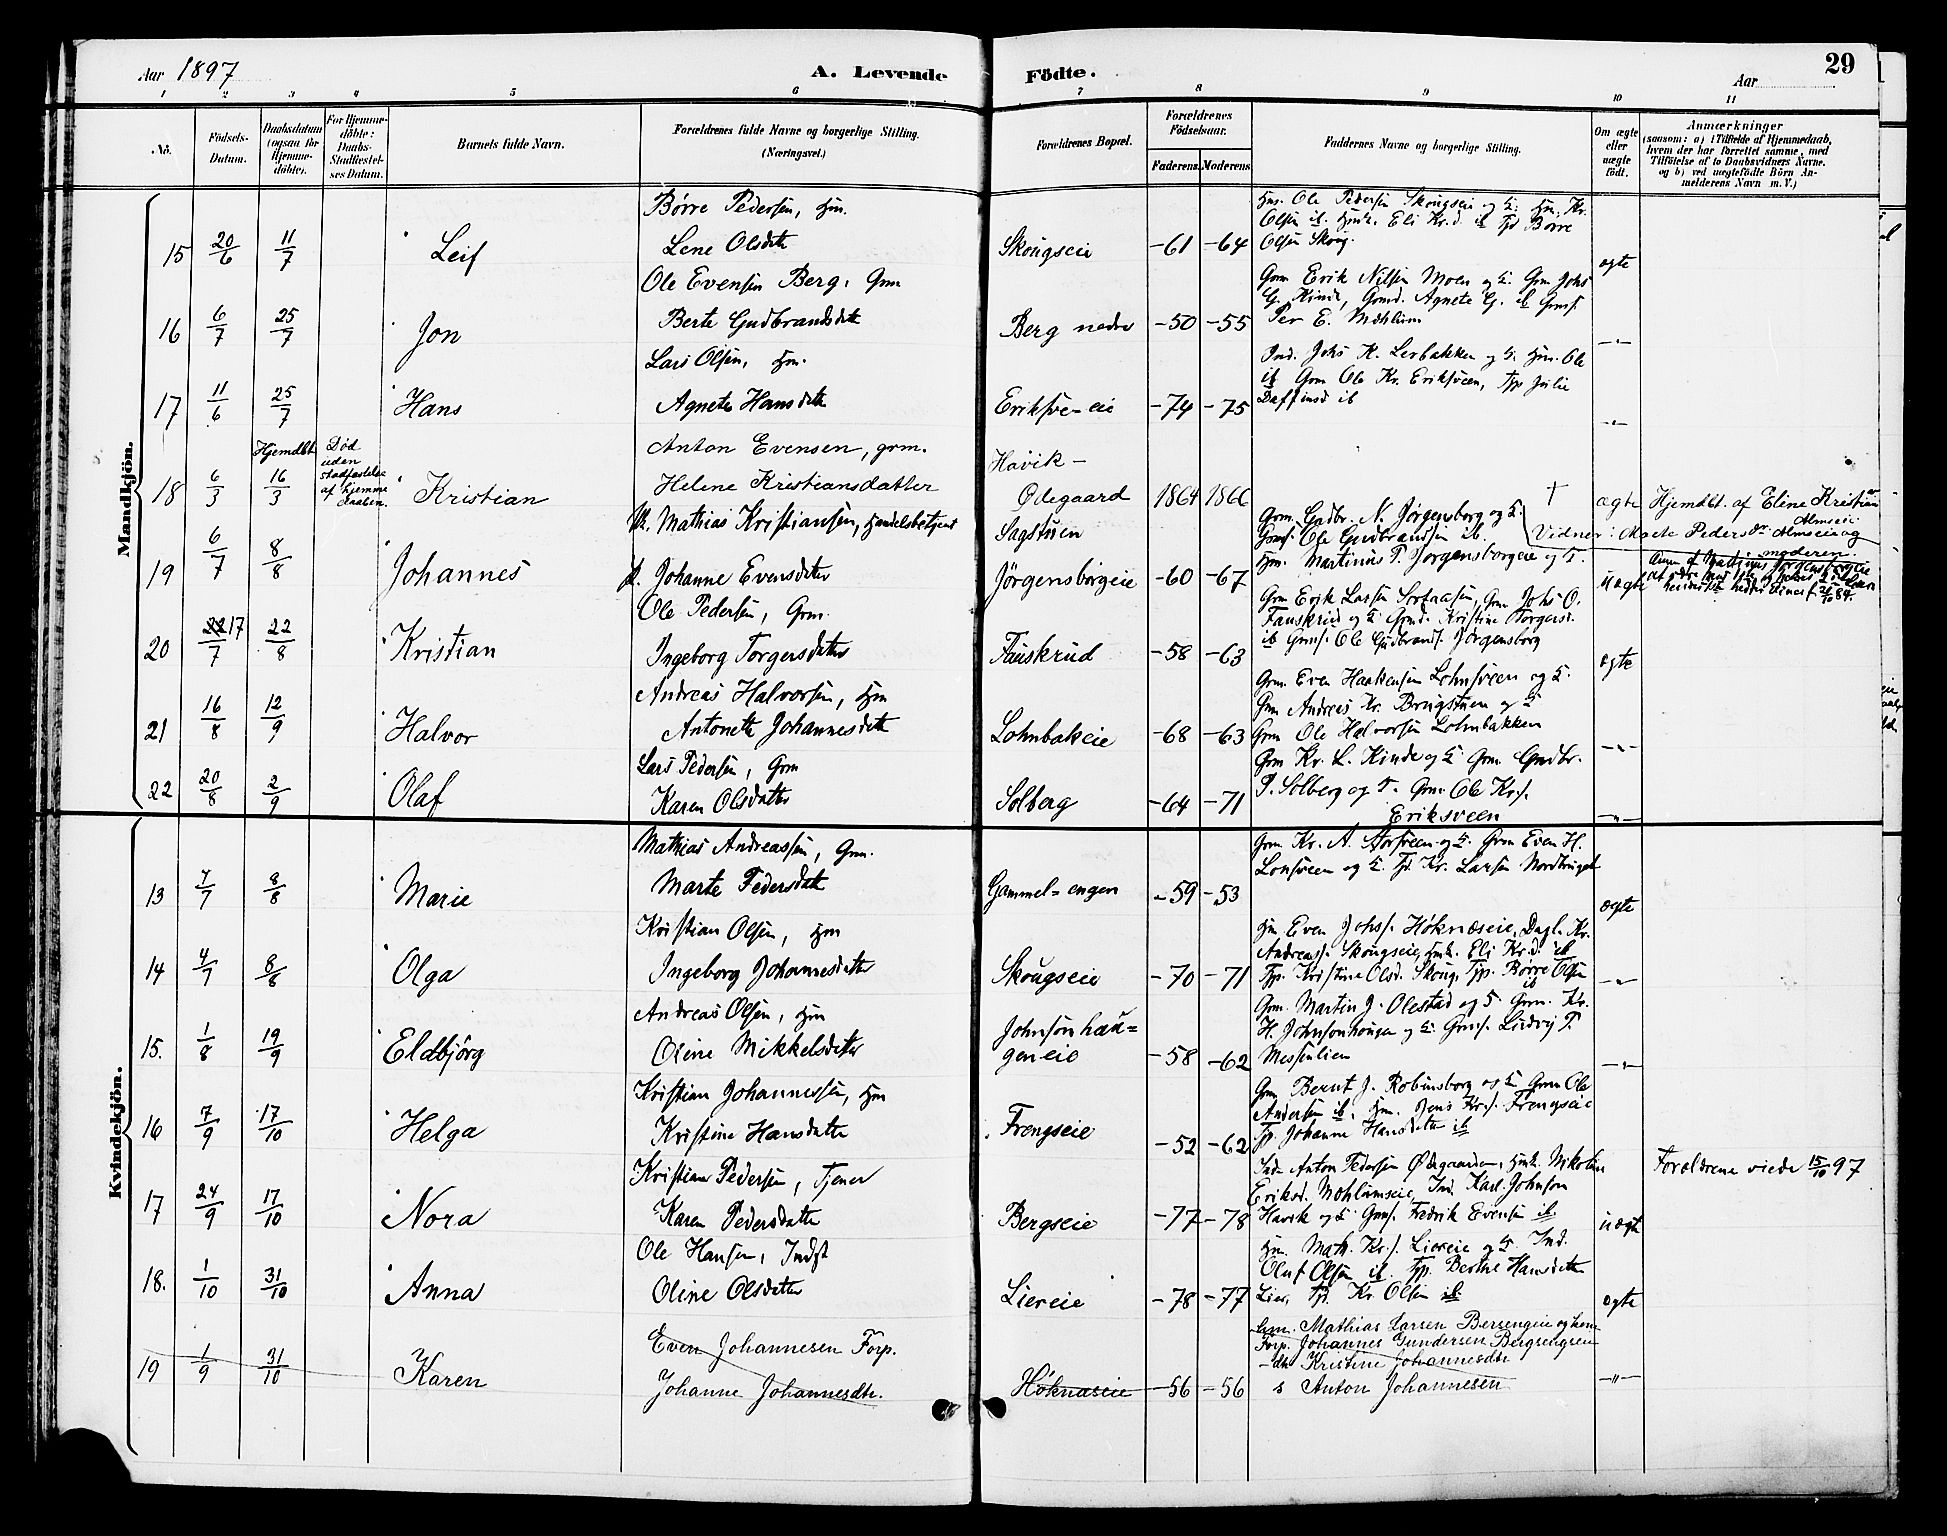 Aar 1897
A. Levende Födte.
Aar
29
1 2 3 4 5 6 7 8 9 10 11
No.
Födsels-Datum.
Daabsdatum (ogsaa for Hjemme-döbte).
For Hjemme-döbte: Daabs-Stadfæstelses Datum.
Barnets fulde Navn.
Forældrenes fulde Navne og borgerlige Stilling. (Næringsvei.)
Forældrenes Bopæl.
Forældrenes Födselsaar.
Faderens. Moderens
Faddernes Navne og borgerlige Stilling.
Om ægte eller uægte födt.
Anmærkninger
(saasom: a) i Tilfælde af Hjemmedaab, hvem der har forrettet samme, med Tilföielse af to Daabsvidners Navne. og b) ved uægtefödte Börn Anmelderens Navn m. V.)
Mandkjön.
15 20/6 11/7 Leif
Børre Pedersen, Hm.
Lene Olsdtr
Skougseie -61 -64
Hm. Ole Pedersen Skougseie og K. Hm. Kr.
Olsen ib. Hmk. Eli Kr.d. ib Tp Børre
Olsen Skoug.
ægte
16 6/7 25/7 Jon
Ole Evensen Berg, Grm
Berte Gudbrandsdtr
Berg nedre -50 -55
Grm Erik Nilsen Moen og K. Grm Johs
G. Kinde, Grmd. Agnete G. ib Grms.
Per E. Mæhlum
-"-
17 11/6 25/7 Hans
Lars Olsen, Hm.
Agnete Hansdtr
Eriksve-eie -74 -75
Ind. Johs K. Lerbakken og K. Hm. Ole
ib Grm Ole Kr. Eriksveen, Tp Julie
-"-
18 6/3 Hjemdbt 16/3
Død uden stadfæstelse af hjemmedaaben.
Kristian
Anton Evensen, grm.
Helene Kristiansdatter
Havik-Ødegaard 1864 1866
† ægte Hjemdbt. af Eline Kristian
Almseie
Vidner: Marte Pedersdr. Almseie og
moderen.
19 6/7 8/8 Johannes
Mathias Kristiansen, Handelsbetjent
Johanne Evensdatter
Sagstuen
Jörgensborgeie -60 -67
Grm. Gudbr. N. Jörgensborg og K.
Grms. Ole Gudbrandsen ib.
Hm. Martinus P. Jorgensborgeie og K.
uægte
20 22 17/7 22/8 Kristian
Ole Pedersen, Grm
Ingeborg Torgersdatter
Fauskrud -58 -63
Grm Erik Larsen Sortaasen, Grm Johs O.
Fauskrud og K Grmd. Kristine Torgersd.
ib Grms. Ole Gudbrands. Jörgensborg
ægte
21 16/8 12/9 Halvor
Andreas Halvorsen, Hm
Antonette Johannesdtr
Lohnbakeie -68 -63
Grm. Even Haakensen Lohnsveen og K.
Grm Andreas Kr. Brugstuen og K
Grm Ole Halvorsen Lohnbakken
-"-
22 20/8 2/9 Olaf
Lars Pedersen, Grm
Karen Olsdatter
Solberg -64 -71
Grm Kr. L. Kinde og K Grm Gudbr.
P. Solberg og K. Grm. Ole Kr.s.
Eriksveen
-"-
Kvindekjön.
13 7/7 8/8 Marie
Mathias Andreassen, Grm.
Marte Pedersdtr
Gammel-engen -59 -53
Grm Kr. A. Storsveen og K. Grm Even H.
Lonsveen og K. Tp. Kr. Larsen
ægte
14 4/7 8/8 Olga
Kristian Olsen, Hm
Ingeborg Johannesdatter
Skougseie -70 -71
Hm Even Johs.s. Höknæseie, Dagl. Kr.
Andreas.s. Skougseie, Hmk. Eli Kr.d. ib
Tp. Kristine Olsd. Skoug, Tp. Børre Olsen
ib
-"-
15. 1/8 19/9 Eldbjörg
Andreas Olsen, Hm
Oline Mikkelsdatter
Johnsonhau-geneie -58 -62
Grm. Martin J. Olestad og K Grm. Kr.
H. Johnsonhougen og K. Grms. Ludvig P.
Messenlien
-"-
16 7/9 17/10 Helga
Kristian Johannessen, Hm
Kristine Hansdatter
Frengseie -52 -62
Grm Bernt J. Robinsborg og K Grm Ole
Andersen ib. Hm. Jens Kr.s. Frengseie
Tp. Johanne Hansdatter ib
17 24/9 17/10 Nora
Kristian Pedersen, Tjener
Karen Pedersdatter
Bergseie -77 -78
Ind. Anton Pedersen Ødegaarden, Hmk. Nikoline
Eriksd. Mæhlumseie, Ind. Karl Johnson
Havik og K Grms. Fredrik Evensen ib
uægt
Forældrene viede 15/10 97
18. 1/10 31/10 Anna
Ole Hansen, Indst
Oline Olsdatter
Liereie -78 -77
Hm. Math. Kr.s. Liereie og K. Ind.
Oluf Olsen ib. Tp. Berthe Hansdatter
Lier, Tp. Kr. Olsen ib
ægte
19 1/9 31/10 Karen
Even Johannesen Forp.
Johanne Johannesdtr.
Höknaseie -56 -56
Mathias Larsen Bersengeie og
Forp. Johannes Gundersen Bergsengeie
-dtr Kristine Johannesdtr
s Anton Johannesen
-"-